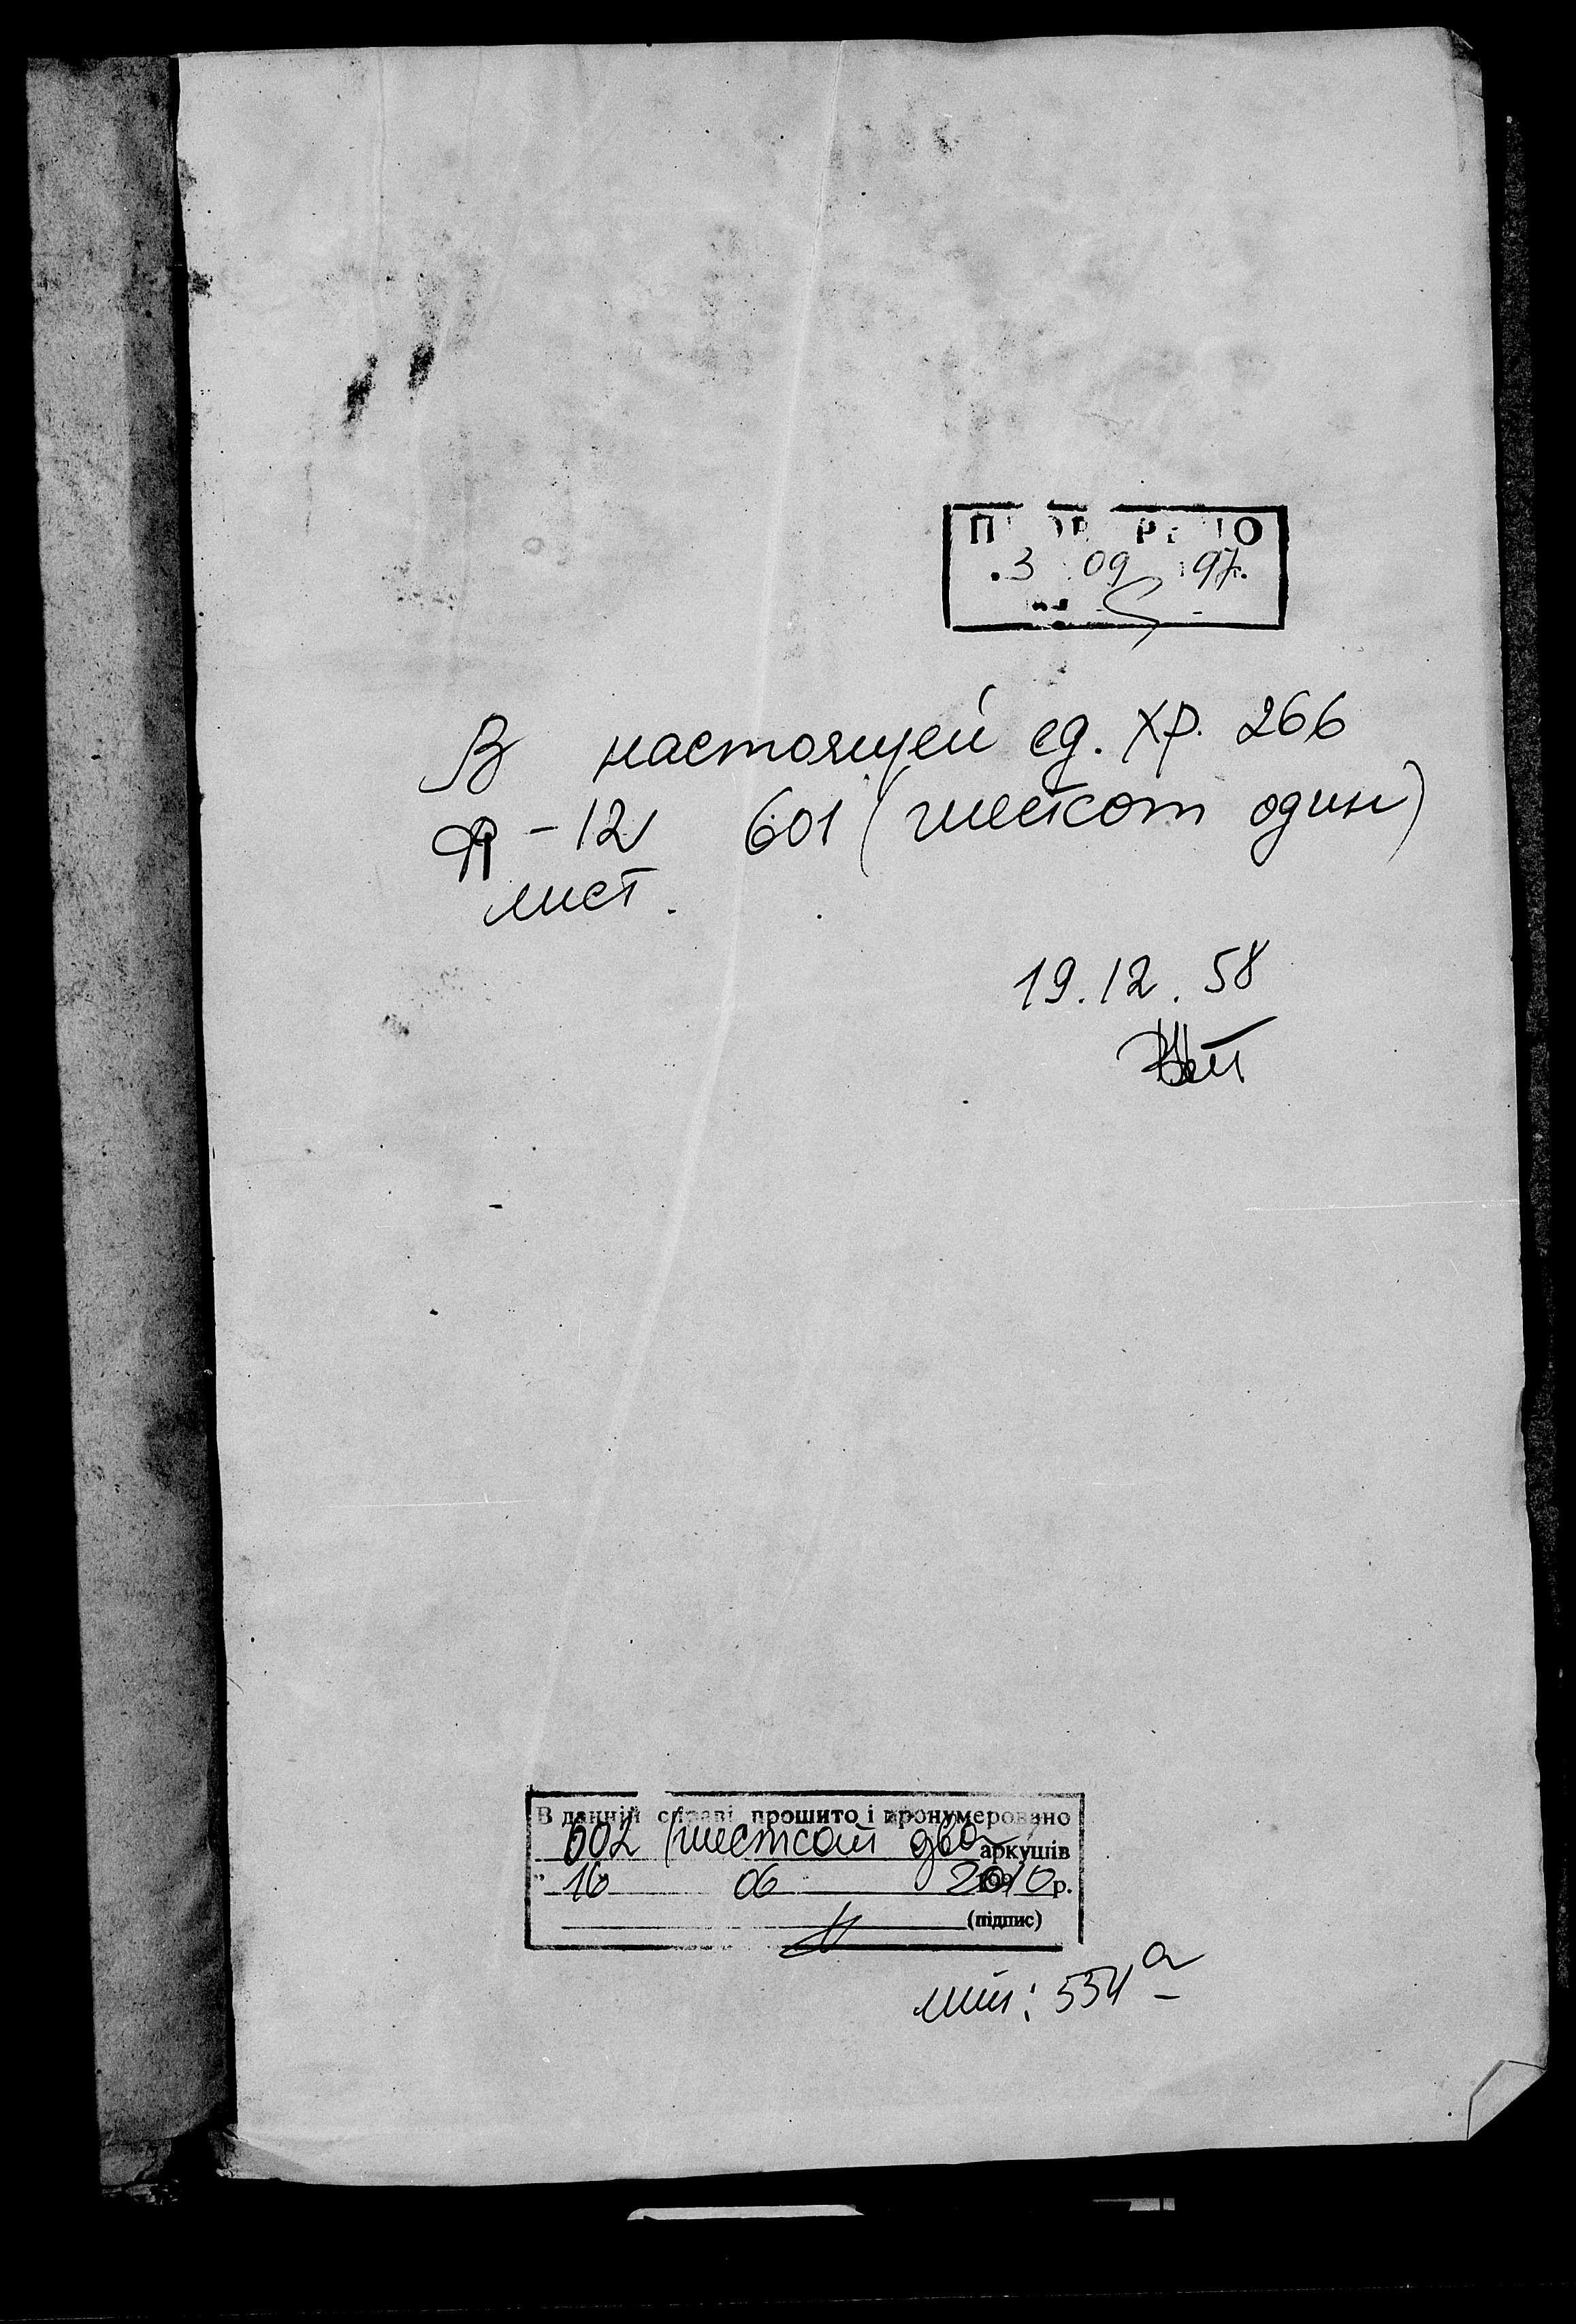 ПРОВЕРЕНО
3 09 1997г.
В настоящей ед. хр. 266
Ф-12 601 (шестсот один)
лист.
19.12.58
В данній справі прошито і пронумеровано
602 (шестсот два) аркушів
" 16 " 06 2010 р.
(підпис)
лит: 554а